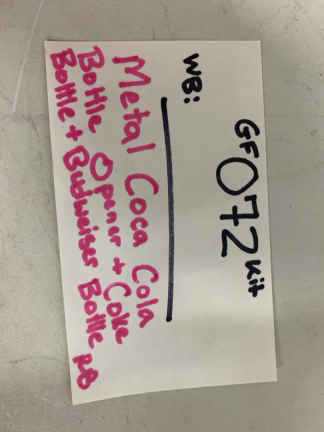 GF072 Kit
WB:
Metal Coca Cola
Bottle Opener + Coke
Bottle + Budwiser Bottle